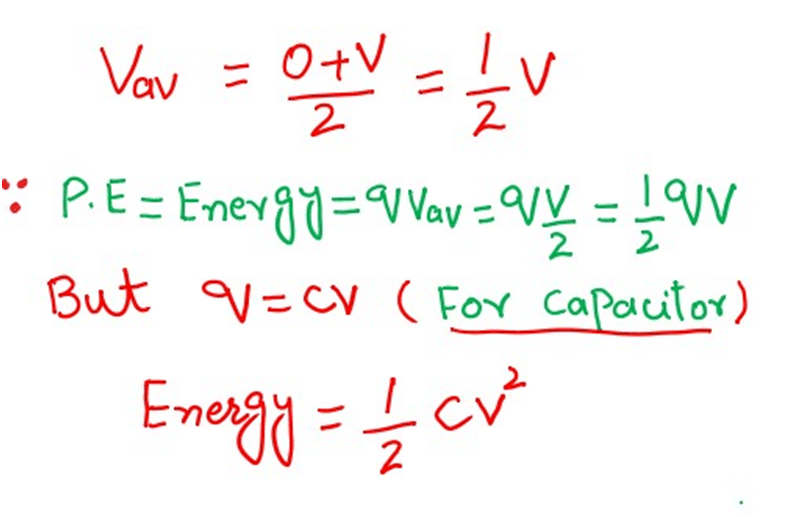 Vav = 0+V/2 = 1/2 V
∵ P.E = Energy = qVav = qV/2 = 1/2 qV
But q = CV ( For Capacitor )
Energy = 1/2 CV²